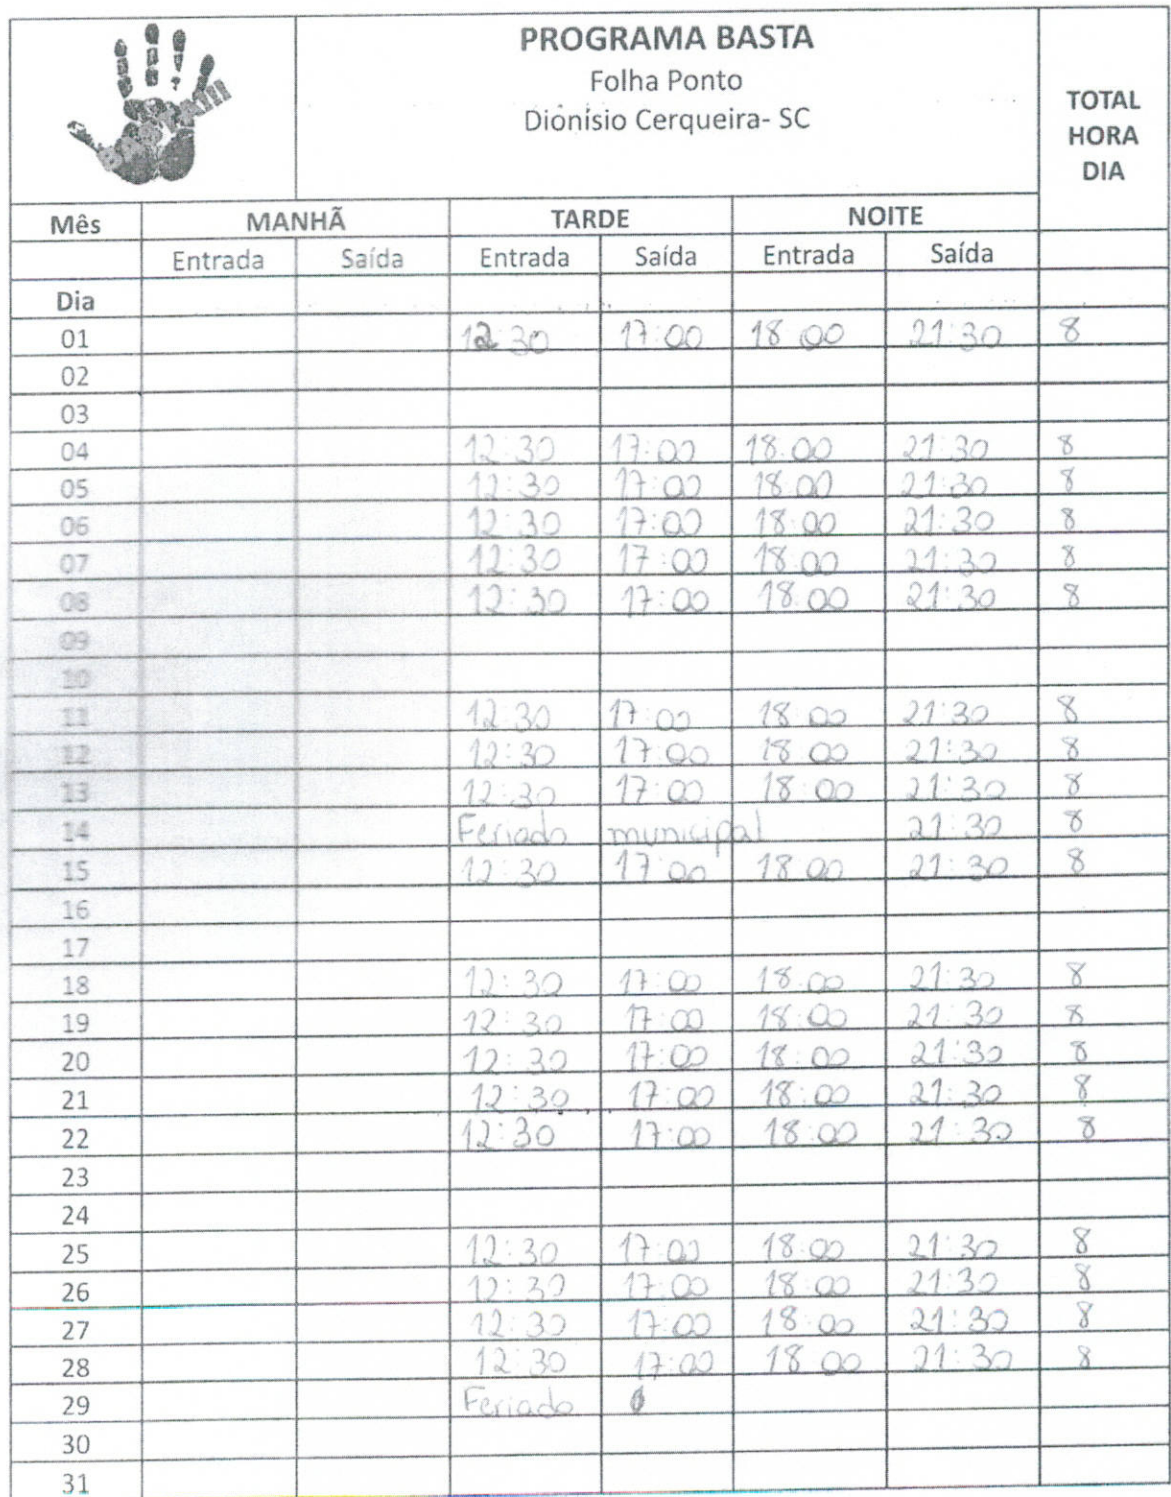 BASTA!!!
PROGRAMA BASTA
Folha Ponto
Dionísio Cerqueira- SC
TOTAL
HORA
DIA
Mês MANHÃ TARDE NOITE
Entrada Saída Entrada Saída Entrada Saída
Dia
01 12:30 17:00 18:00 21:30 8
02
03
04 12:30 17:00 18:00 21:30 8
05 12:30 17:00 18:00 21:30 8
06 12:30 17:00 18:00 21:30 8
07 12:30 17:00 18:00 21:30 8
08 12:30 17:00 18:00 21:30 8
09
10
11 12:30 17:00 18:00 21:30 8
12 12:30 17:00 18:00 21:30 8
13 12:30 17:00 18:00 21:30 8
14 Feriado municipal 21:30 8
15 12:30 17:00 18:00 21:30 8
16
17
18 12:30 17:00 18:00 21:30 8
19 12:30 17:00 18:00 21:30 8
20 12:30 17:00 18:00 21:30 8
21 12:30 17:00 18:00 21:30 8
22 12:30 17:00 18:00 21:30 8
23
24
25 12:30 17:00 18:00 21:30 8
26 12:30 17:00 18:00 21:30 8
27 12:30 17:00 18:00 21:30 8
28 12:30 17:00 18:00 21:30 8
29 Feriado
30
31